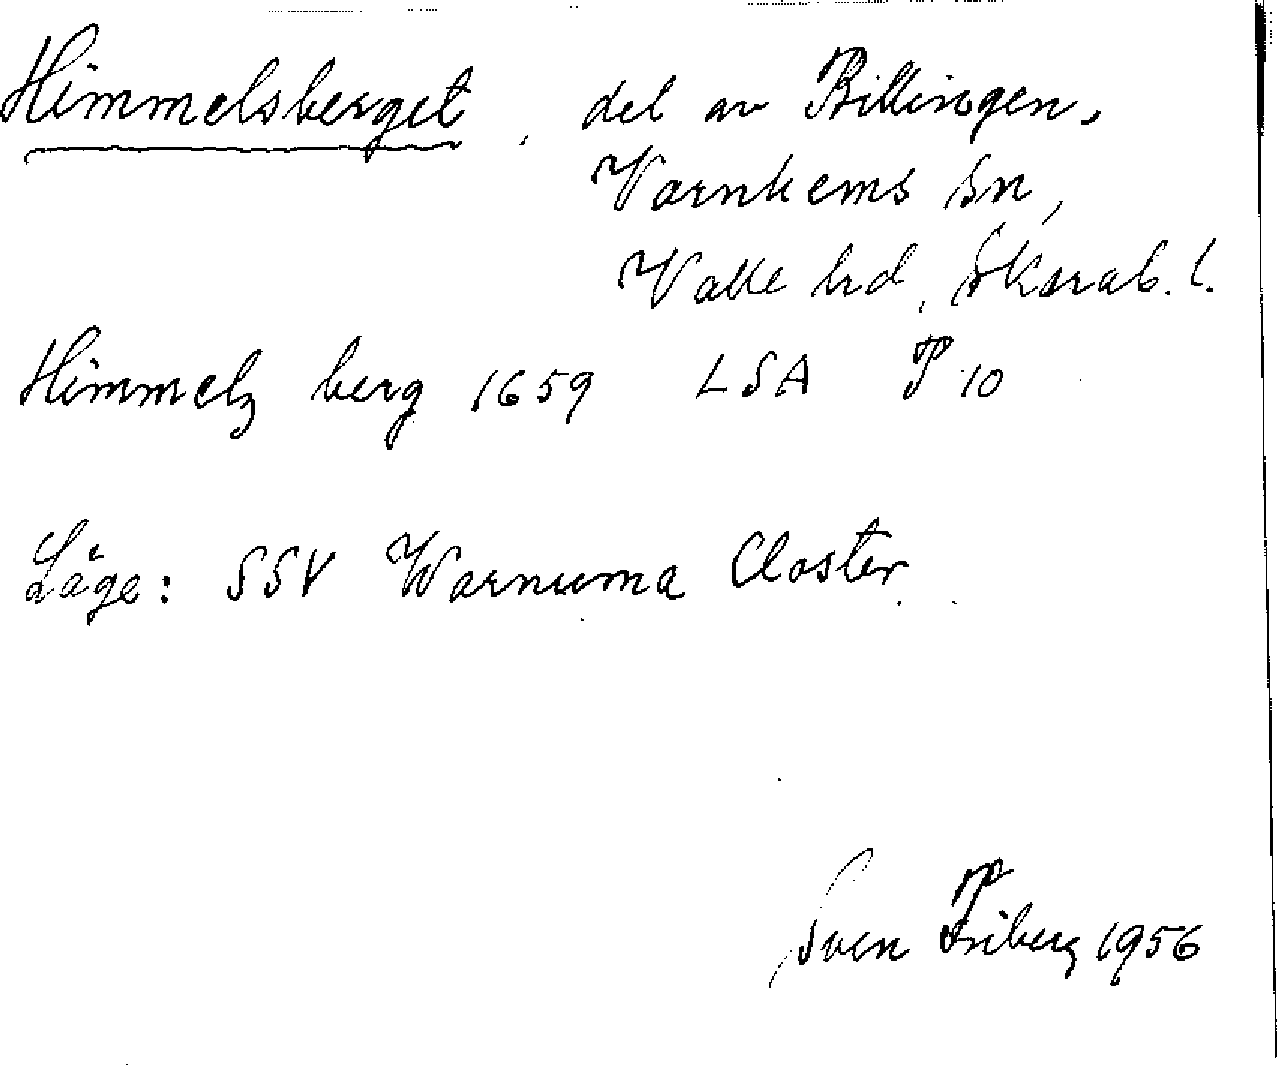 Himmelsberget, del av Billingen,
Varnhems sn,
Valle hd, Skarab. l.
Himmelz berg 1659 LSA P 10
Läge: SSV Warnuma Closter
Sven Friberg 1956